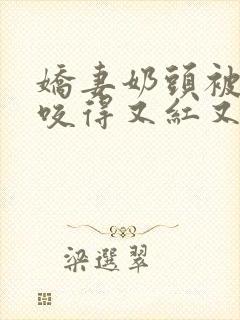 嬌妻奶頭被
咬得又紅又
梁選翠